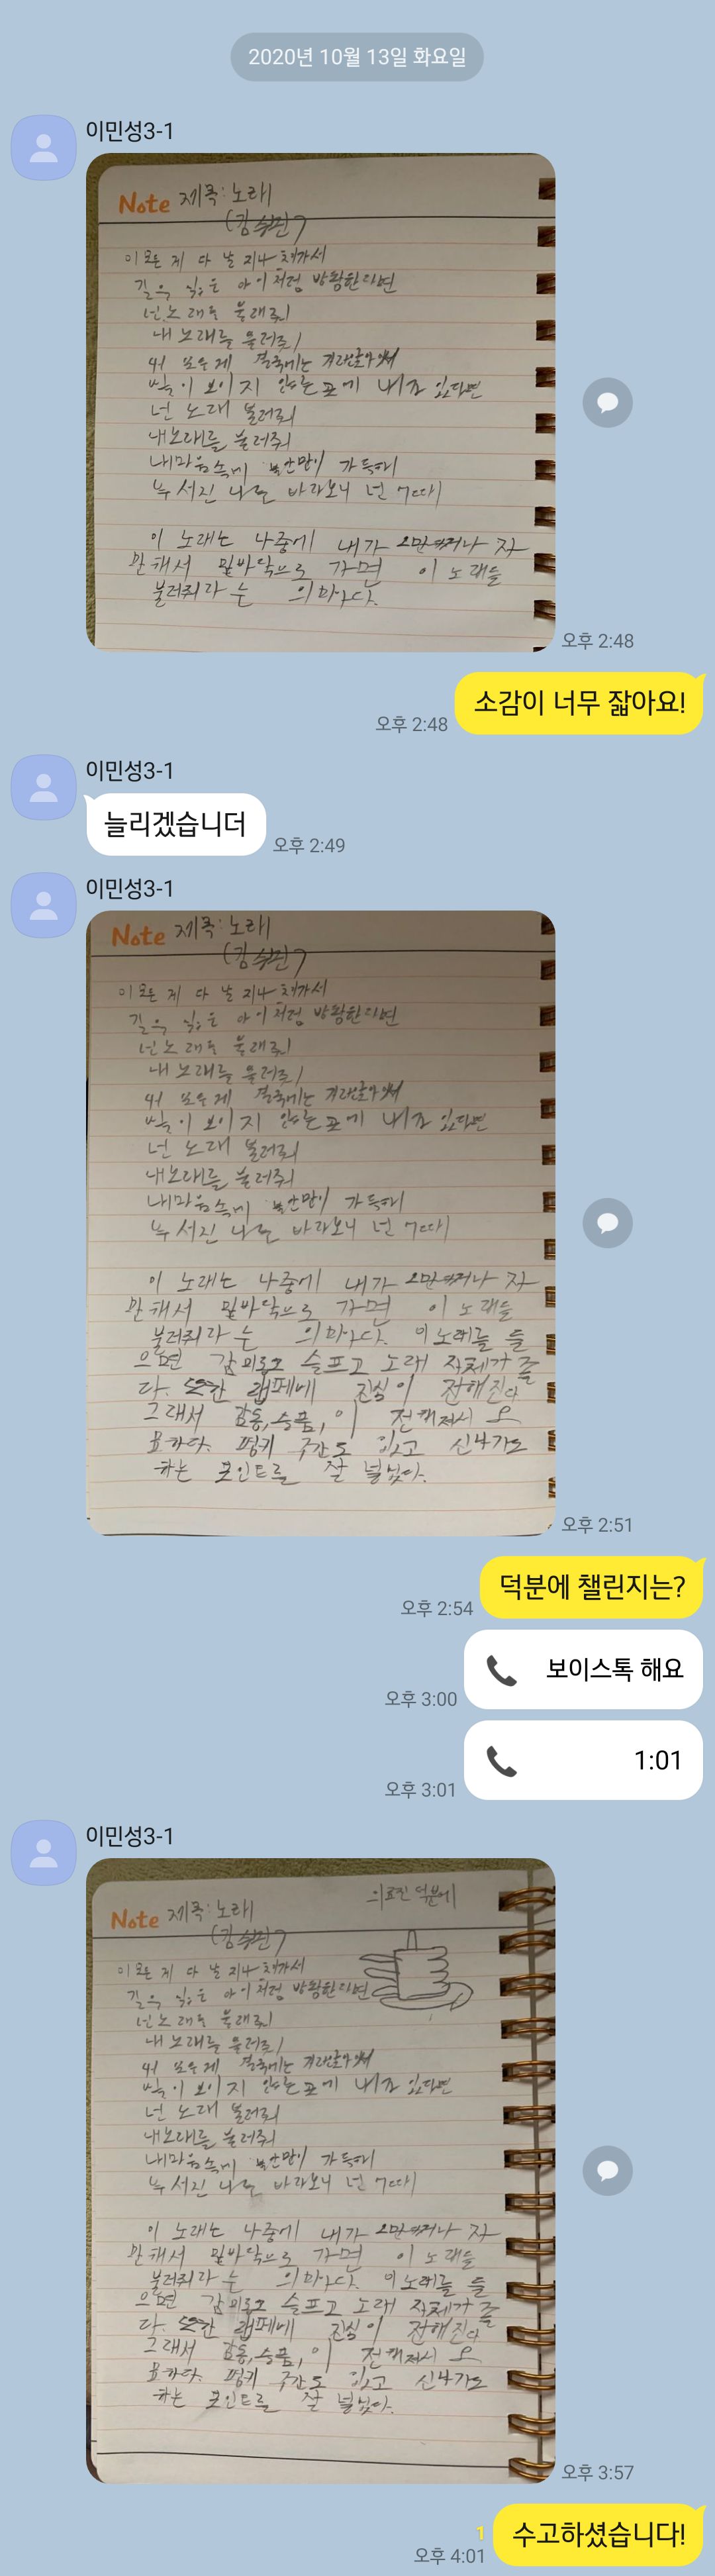 2020년 10월 13일 화요일
이민성3-1
Note 제목: 노래
이 모든 게 다 날 지나
아이처럼 방황한다면
넌 노래를 불러줘
내 노래를 불러줘
결국에는
빛이 보이지 않는 내가 있다면
넌 노래 불러줘
내노래를 불러줘
내마음속에 불안만이 가득해
부서진 나를 바라보니 넌
이 노래는 나중에 내가 자
만해서 밑바닥으로 가면 이 노래를
불러줘라는 의미이다.
오후 2:48
소감이 너무 짧아요!
오후 2:48
이민성3-1
늘리겠습니더
오후 2:49
이민성3-1
Note 제목: 노래
이 모든 게 다 날 지나
아이처럼 방황한다면
넌 노래를 불러줘
내 노래를 불러줘
결국에는
빛이 보이지 않는 내가 있다면
넌 노래 불러줘
내노래를 불러줘
내마음속에 불안만이 가득해
부서진 나를 바라보니 넌
이 노래는 나중에 내가 자
만해서 밑바닥으로 가면 이 노래를
불러줘라는 의미이다. 이 노래를 들
으면 슬프고 노래 자체가 좋
다. 또한 진심이 전해진다
그래서 감동, 슬픔, 이 전해져서 오
묘하다. 구간도 있고 신나기도
하는 포인트를 잘 넣었다.
오후 2:51
덕분에 챌린지는?
오후 2:54
보이스톡 해요
오후 3:00
1:01
오후 3:01
이민성3-1
의료진 덕분에
Note 제목: 노래
이 모든 게 다 날 지나
아이처럼 방황한다면
넌 노래를 불러줘
내 노래를 불러줘
결국에는
빛이 보이지 않는 내가 있다면
넌 노래 불러줘
내노래를 불러줘
내마음속에 불안만이 가득해
부서진 나를 바라보니 넌
이 노래는 나중에 내가 자
만해서 밑바닥으로 가면 이 노래를
불러줘라는 의미이다. 이 노래를 들
으면 슬프고 노래 자체가 좋
다. 또한 진심이 전해진다
그래서 감동, 슬픔, 이 전해져서 오
묘하다. 구간도 있고 신나기도
하는 포인트를 잘 넣었다.
오후 3:57
수고하셨습니다!
1
오후 4:01